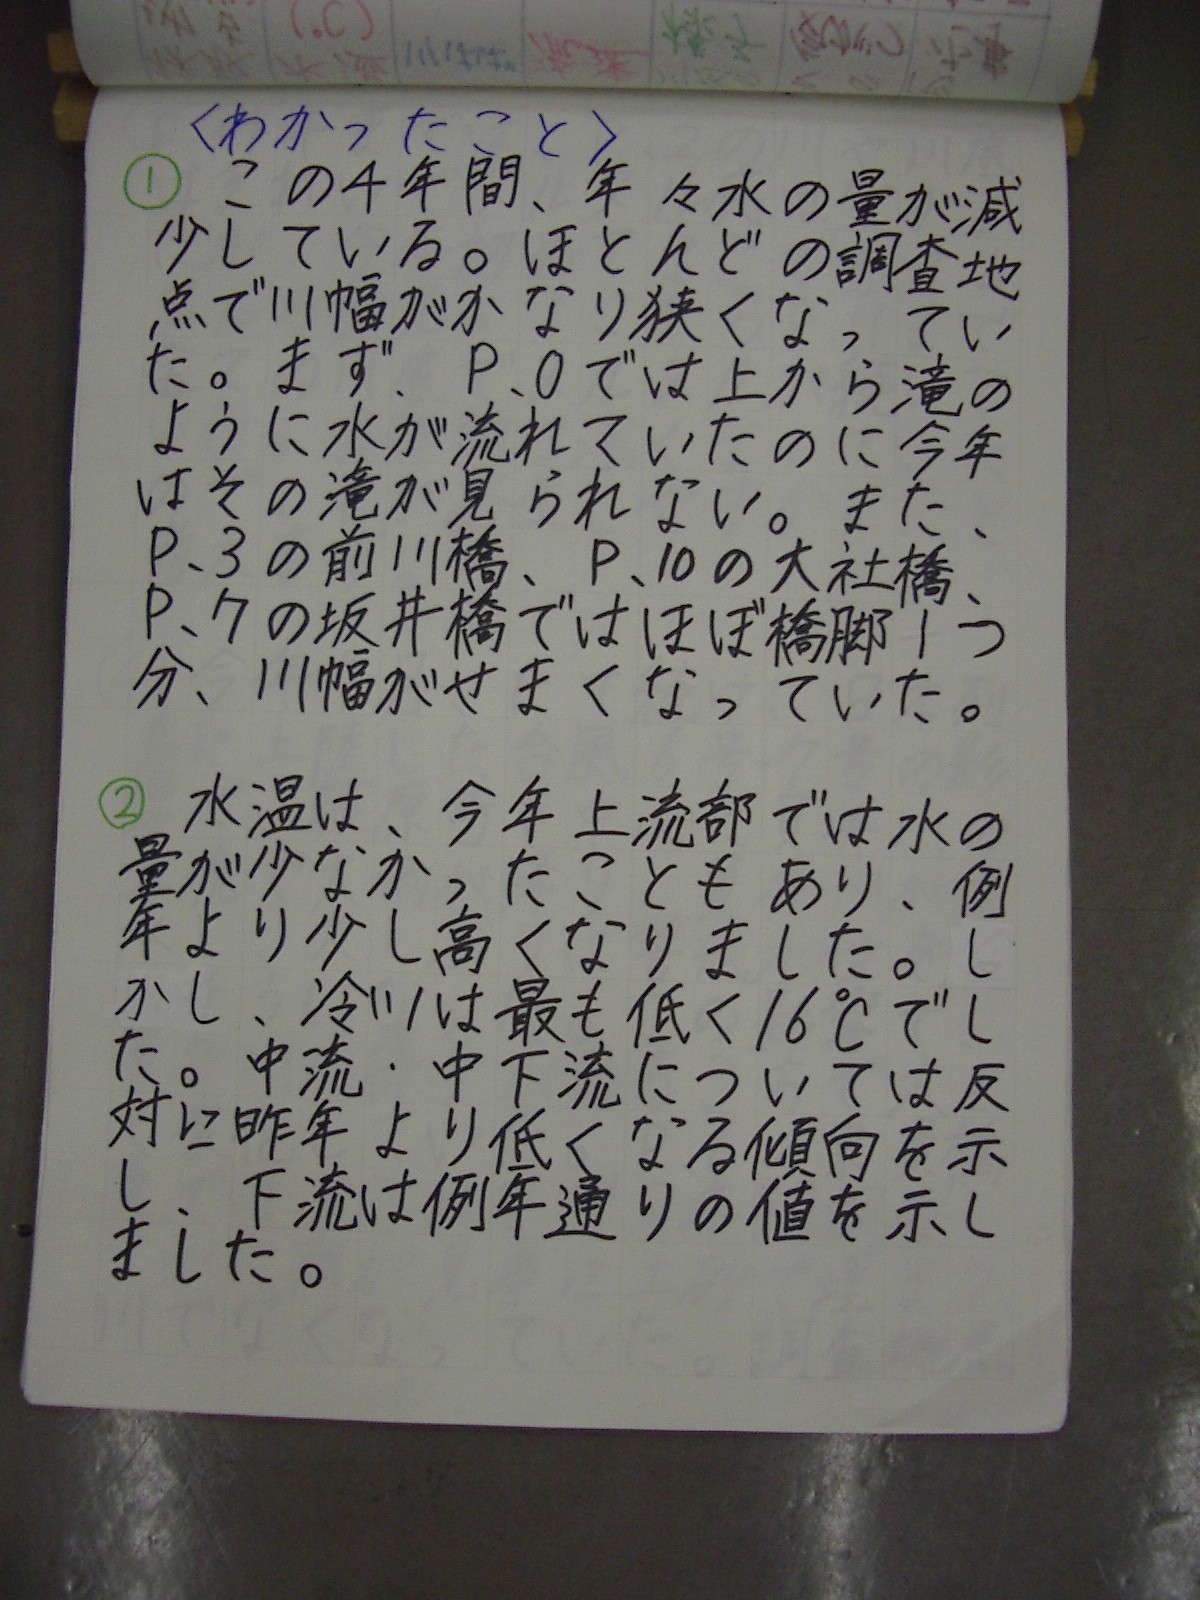 〈わかったこと〉
① この4年間、年々水の量が減
少している。ほとんどの調査地
点で川幅がかなり狭くなってい
た。まず、P、0では上から滝の
ように水が流れていたのに今年
はその滝が見られない。また、
P、3の前川橋、P、10の大社橋、
P、7の坂井橋ではほぼ橋脚1つ
分、川幅がせまくなっていた。
② 水温は、今年上流部では水の
量が少なかったこともあり、例
年より少し高くなりました。し
かし、冷川は最も低く16℃でし
た。中流・中下流については反
対に昨年より低くなる傾向を示
し、下流は例年通りの値を示し
ました。